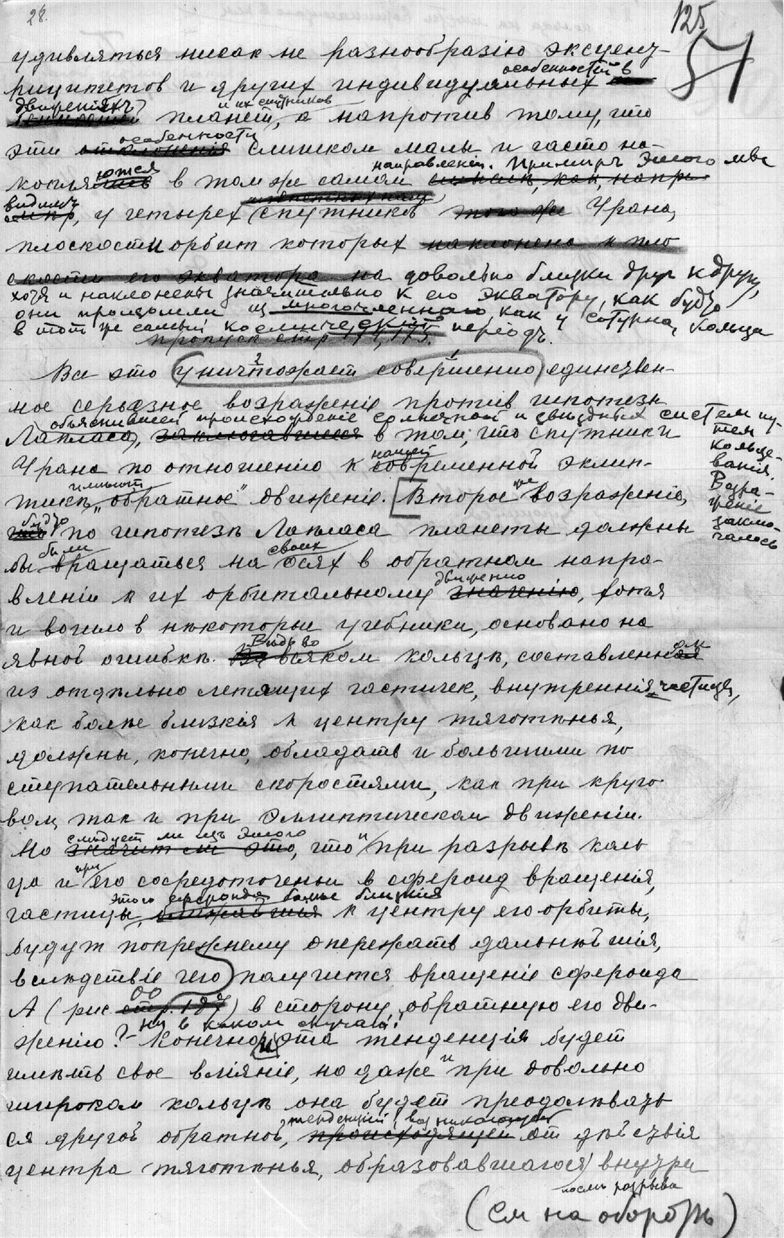 28.
125
51
удивляться никак не разнообразію эксцен-
рицитетов и других индивидуальных особенностей в
движеніях планет и их спутников, а напротив тому, что
эти особенности слишком малы и часто на-
копляются в том же самом направленіи. Примѣръ этого мы
видимъ у четырех спутников Урана,
плоскости орбит которых
на довольно близки друг к другу,
хотя и наклонены значительно к его экватору, как будто
они произошли из как у Сатурна, кольца
в тот же самый космическій періодъ.
пропуск стр
Все это уничтожает совершенно единствен-
ное серьезное возраженіе против гипотезы
Лапласа, объяснившей происхожденіе солнечной и звѣздных систем пу-
тем кольце-
ванія. Возра-
женіе заклю-
чалось
в том, что спутники
Урана по отношенію к нашей современной эклип-
тикѣ имѣют „обратное" движеніе. [Второе же возраженіе,
будто по гипотезѣ Лапласа планеты должны
были бы вращаться на своих осях в обратном напра-
вленіи к их орбитальному движенію, хотя
и вошло в нѣкоторые учебники, основано на
явной ошибкѣ. Вѣдь во всяком кольцѣ, составленном
из отдѣльно летящих частичек, внутреннія частицы,
как болѣе близкія к центру тяготѣнья,
должны, конечно, обладать и большими по
ступательными скоростями, как при круго
вом, так и при эллиптическом движеніи.
Но слѣдует ли изъ этого, что и при разрывѣ коль
ца и при его сосредоточеньи в сфероид вращенія,
частицы этого сфероида болѣе близкія к центру его орбиты,
будут попрежнему опережать дальнѣйшія,
вслѣдствіе чего получится вращеніе сфероида
А (рис 00) в сторону, обратную его дви-
женію? — Ни в каком случаѣ! Конечно, и эта тенденція будет
имѣть свое вліяніе, но даже и при довольно
широком кольцѣ она будет преодолѣвать
ся другой обратной, тенденціей, возникающей от дѣйствія
центра тяготѣнья, образовавшагося внутри
послѣ разрыва
(см на оборотѣ)